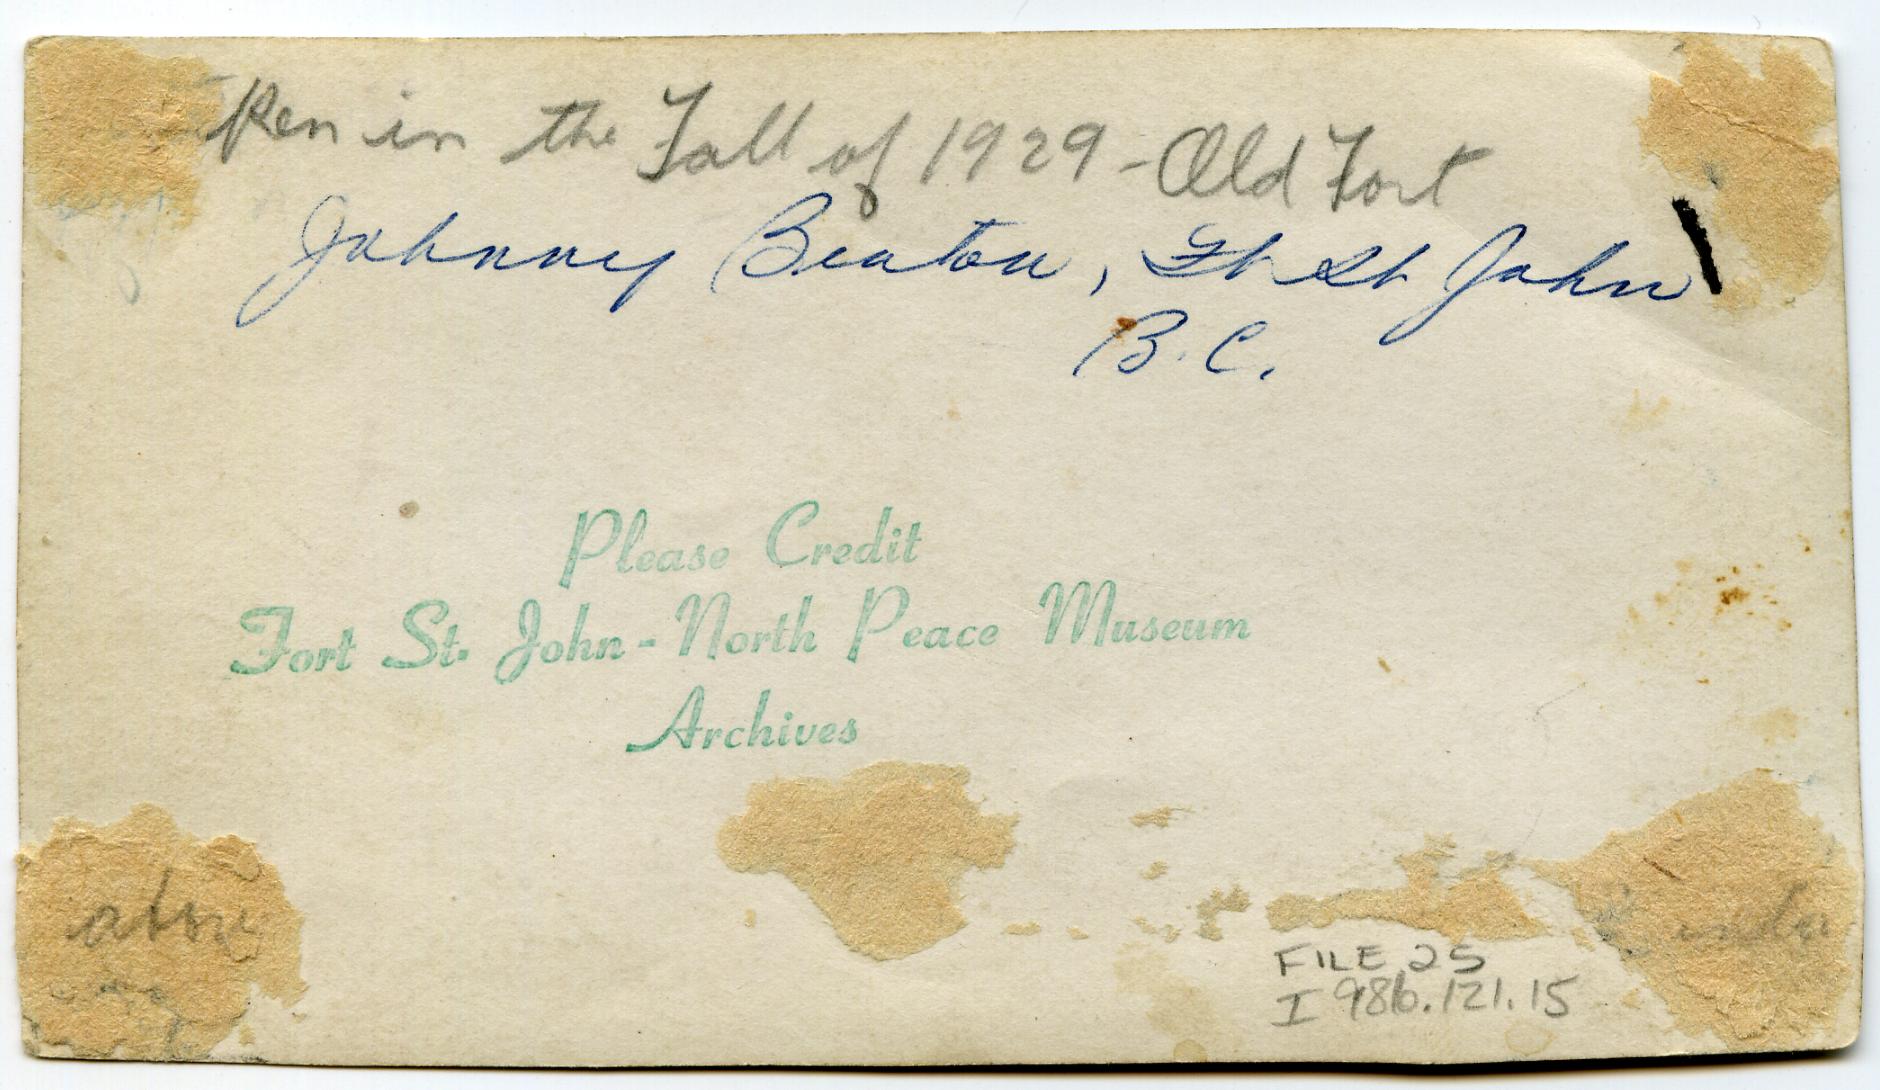 ken in the Fall of 1929 - Old Fort
Johnny Beaton, Ft St John
B.C.
Please Credit
Fort St. John - North Peace Museum
Archives
above
FILE 25
I 986.121.15